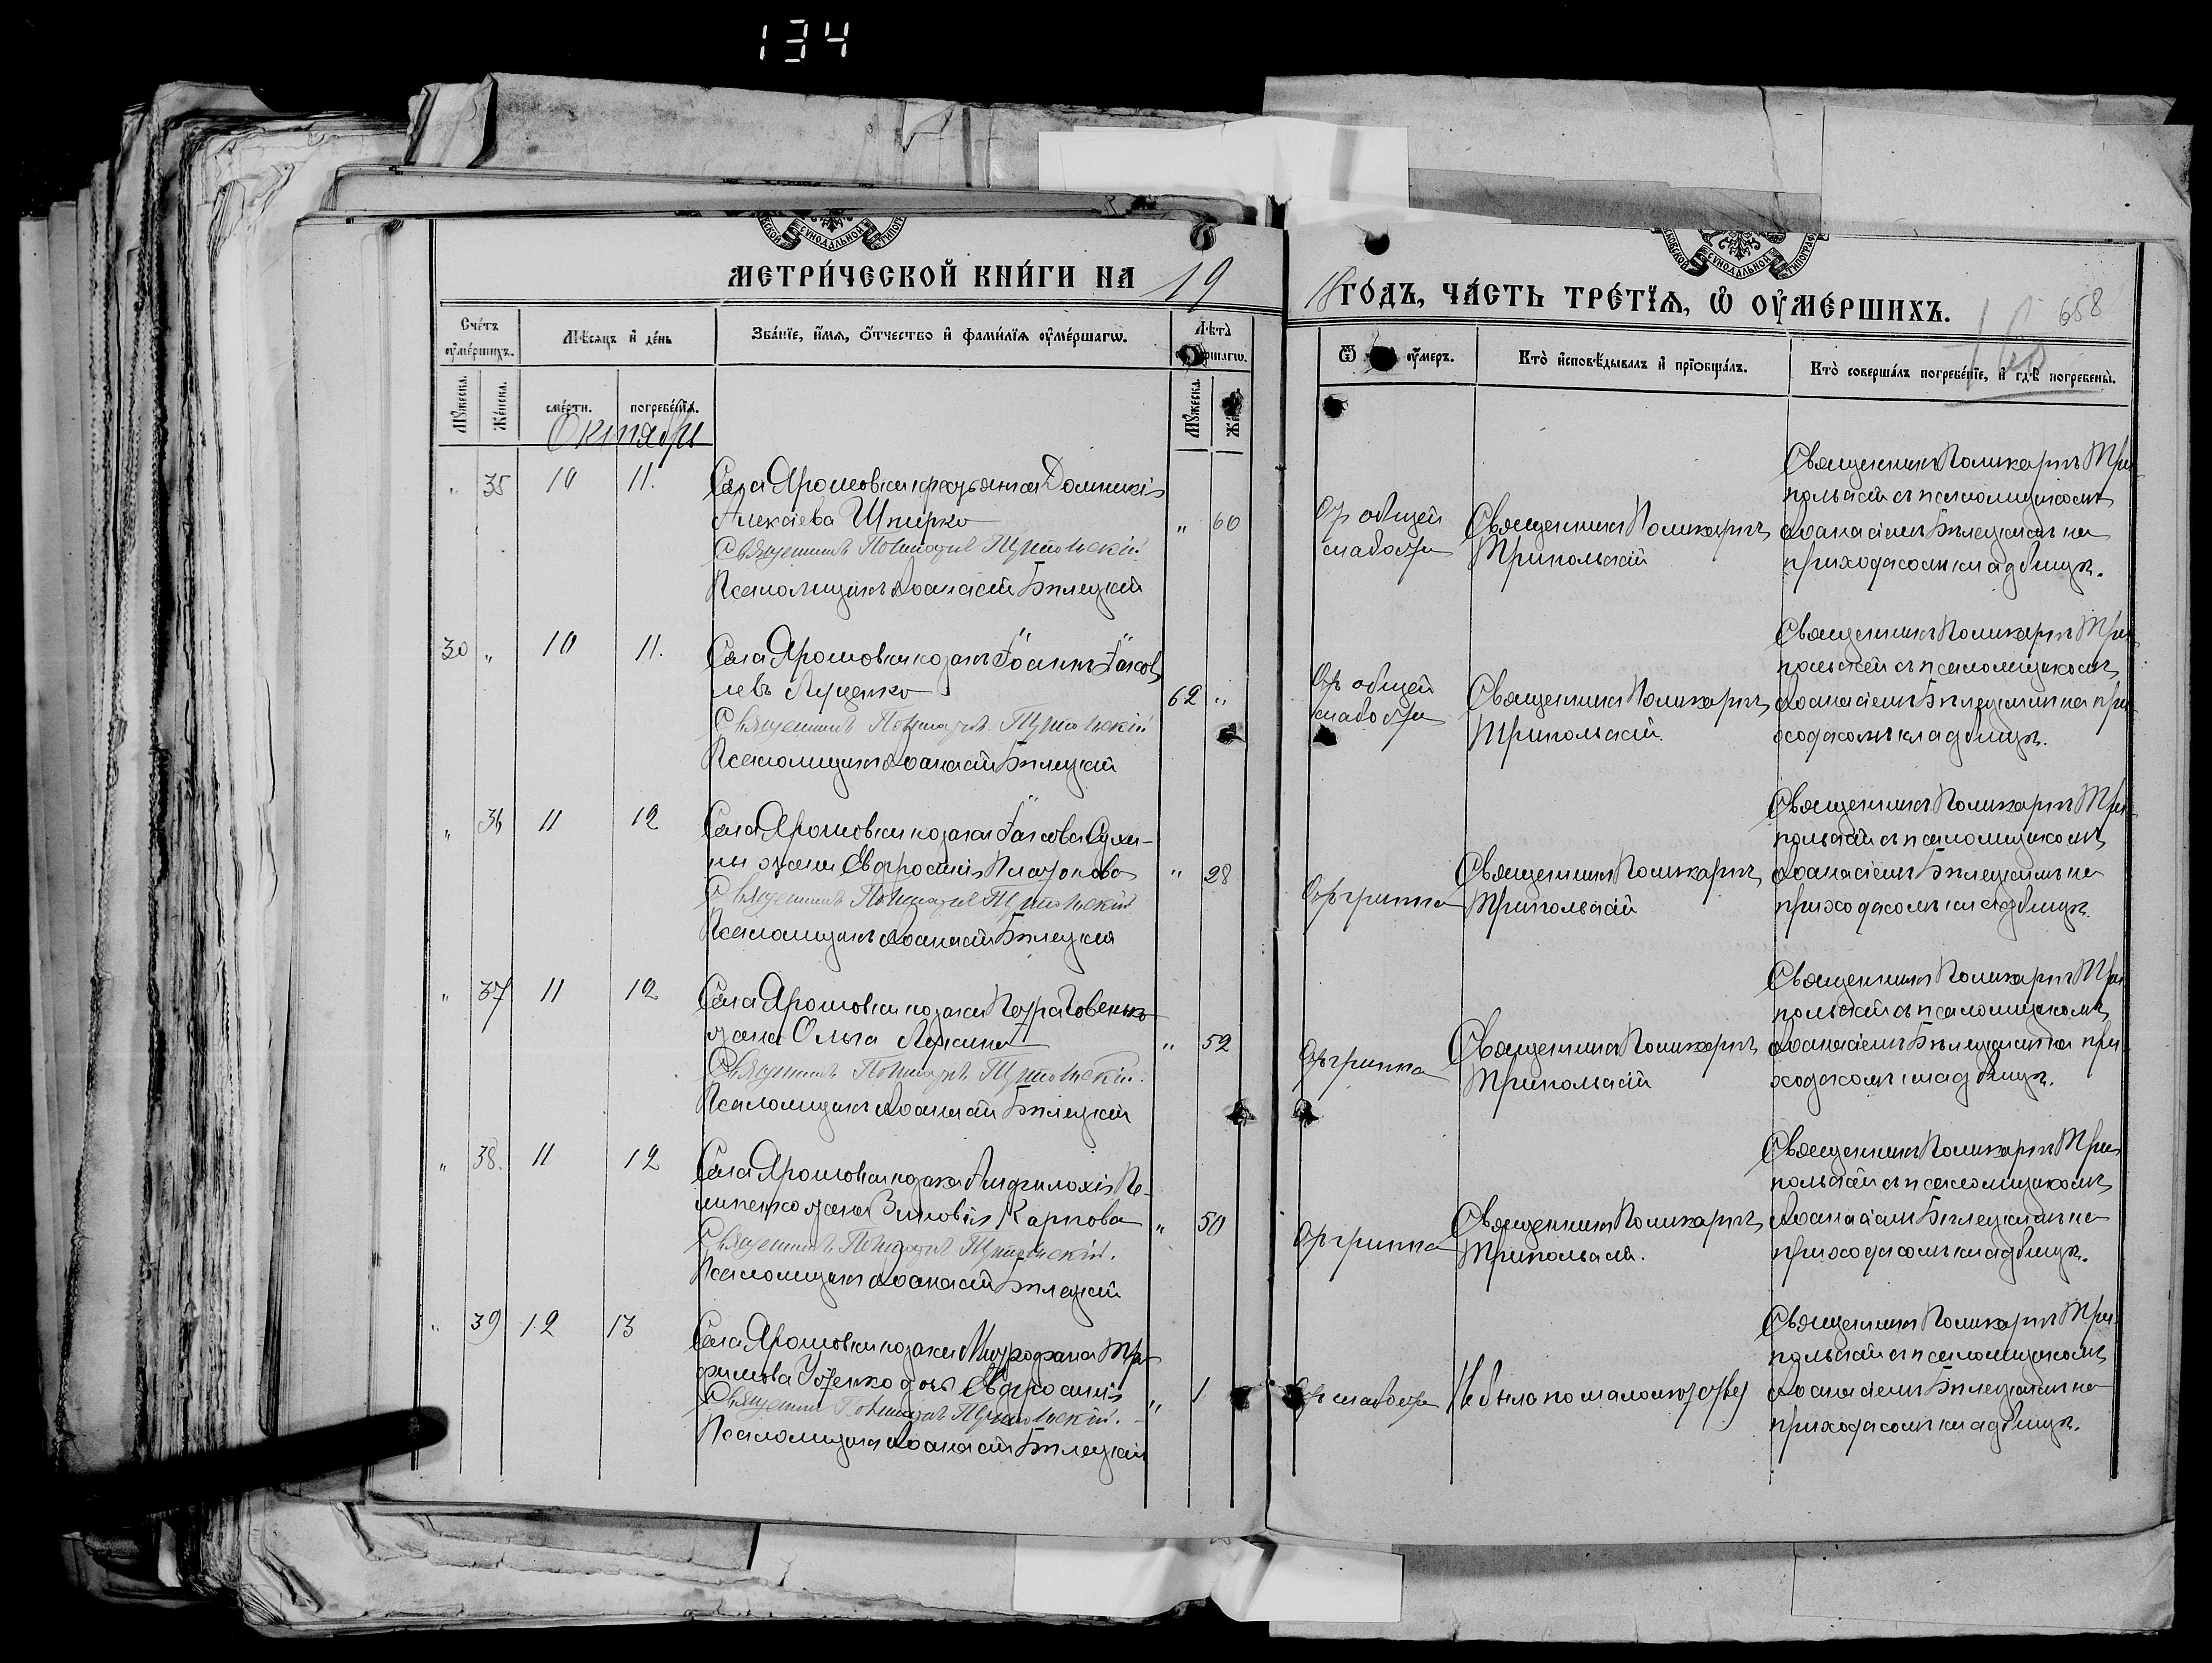 134
МЕТРИ́ЧЕСКОЙ КНИ́ГИ НА 19
18 ГО́ДЪ, ЧА́СТЬ ТРЕ́ТЇѦ, Ѡ ОУ҆МЕ́РШИХЪ.
658
Сче́тъ оу҆ме́ршихъ.
Мѣ́сѧцъ и҆ де́нь
Зва́нїе, и҆́мѧ, ѻ҆́тчество и҆ фамѝлїѧ оу҆ме́ршагѡ.
Лѣ́та
Ѿ
оу҆́меръ.
Кто̀ и҆сповѣ́дывалъ и҆ прїѡбща́лъ.
Кто̀ соверша́лъ погребе́нїе, и҆ гдѣ̀ погребены̀.
Мꙋ́жеска.
Же́нска.
сме́рти.
погребе́нїѧ.
Мꙋ́жеска.
Октября
" 35 10 11. Села Ярошовки крестьянка Домникія
Алексіева Шпирко
" 60
Священникъ Поликарпъ Трипольскій
Псаломщикъ Аѳанасій Бѣлецкій
От общей
слабости
Священникъ Поликарпъ
Трипольскій
Священникъ Поликарпъ Три
польскій съ псаломщикомъ
Аѳанасіемъ Бѣлецкимъ на
приходскомъ кладбищѣ.
30 " 10 11. Села Ярошовки козакъ Іоаннъ Іаков
левъ Луценко
62 "
Священникъ Поликарпъ Трипольскій
Псаломщикъ Аѳанасій Бѣлецкій
От общей
слабости
Священникъ Поликарпъ
Трипольскій.
Священникъ Поликарпъ Три
польскій съ псаломщикомъ
Аѳанасіемъ Бѣлецкимъ на при
ходскомъ кладбищѣ.
" 36 11 12 Села Ярошовки козака Іакова Сухи-
ны жена Евфросинія Платонова
" 28
Священникъ Поликарпъ Трипольскій
Псаломщикъ Аѳанасій Бѣлецкій
От гриппа
Священникъ Поликарпъ
Трипольскій
Священникъ Поликарпъ Три
польскій съ псаломщикомъ
Аѳанасіемъ Бѣлецкимъ на
приходскомъ кладбищѣ.
" 37 11 12 Села Ярошовки козака Петра
жена Ольга
" 52
Священникъ Поликарпъ Трипольскій.
Псаломщикъ Аѳанасій Бѣлецкій
От гриппа
Священникъ Поликарпъ
Трипольскій
Священникъ Поликарпъ Три
польскій съ псаломщикомъ
Аѳанасіемъ Бѣлецкимъ на при
ходскомъ кладбищѣ.
" 38. 11 12 Села Ярошовки козака Амфилохія Пе-
липенко жена Зиновія Карпова
" 50
Священникъ Поликарпъ Трипольскій.
Псаломщикъ Аѳанасій Бѣлецкій
От гриппа
Священникъ Поликарпъ
Трипольскій.
Священникъ Поликарпъ Три
польскій съ псаломщикомъ
Аѳанасіемъ Бѣлецкимъ на
приходскомъ кладбищѣ.
" 39 12 13 Села Ярошовки козака Митрофана Тро
фимова дочь Евфросинія
" 1
Священникъ Поликарпъ Трипольскій.
Псаломщикъ Аѳанасій Бѣлецкій
От слабости
Не было по малолѣтству
Священникъ Поликарпъ Три
польскій съ псаломщикомъ
Аѳанасіемъ Бѣлецкимъ на
приходскомъ кладбищѣ.